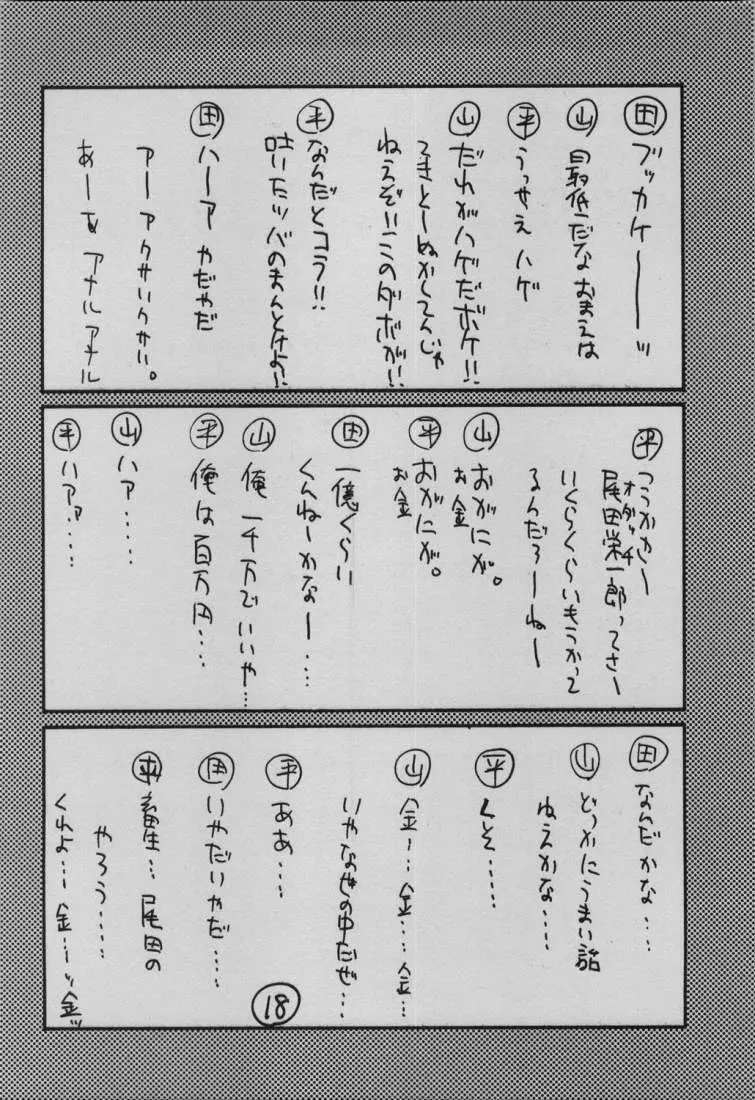 田 ブッカケーーーッ
山 最低だなおまえは
平 うっせえハゲ
山 だれがハゲだボケ!!
てきとーぬかしてんじゃ
ねえぞ!!このダボが!!
平 なんだとコラ!!
吐いたツバのまんとけよ!!
田 ハーア やだやだ
アークサいクサい。
あーあ アナル アナル
平 つうかさー
尾田栄一郎ってさー
オダッチ
いくらくらいもうかって
るんだろーねー
山 おがにが。
お金
平 おがにが。
お金
田 一億くらい
くんねーかなー……
山 俺 一千万でいいや…
平 俺は百万円……
山 ハァ……
平 ハァァ……
田 なんだかな……
山 どっかにうまい話
ねえかな……
平 くそ……
山 金…金…金…
いやなせの中だぜ…
平 ああ……
田 いやだいやだ……
畜生… 尾田の
やろう……
くそ… 金…ッ金ッ
18